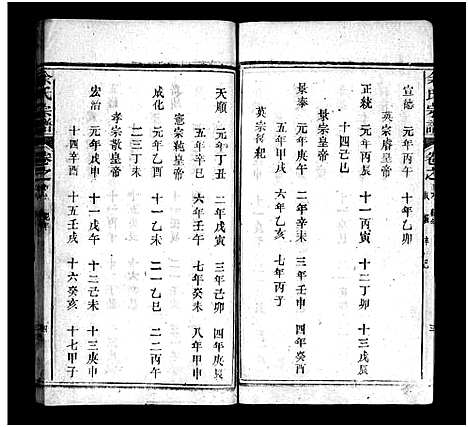 余氏宗譜
宣德 元年丙午 十年乙卯
英宗睿皇帝
正統 元年丙辰 十一丙寅 十二丁卯 十三戊辰
十四己巳
景宗皇帝
景泰 元年庚午 二年辛未 三年壬申 四年癸酉
五年甲戌 六年乙亥 七年丙子
英宗復
天順 元年丁丑 二年戊寅 三年己卯 四年庚辰
五年辛巳 六年壬午 七年癸未 八年甲申
憲宗純皇帝
成化 元年乙酉 十一乙未 二一乙巳 二二丙午
二三丁未
孝宗敬皇帝
宏治 元年戊申 十一戊午 十二己未 十三庚申
十四辛酉 十五壬戌 十六癸亥 十七甲子
余氏宗譜